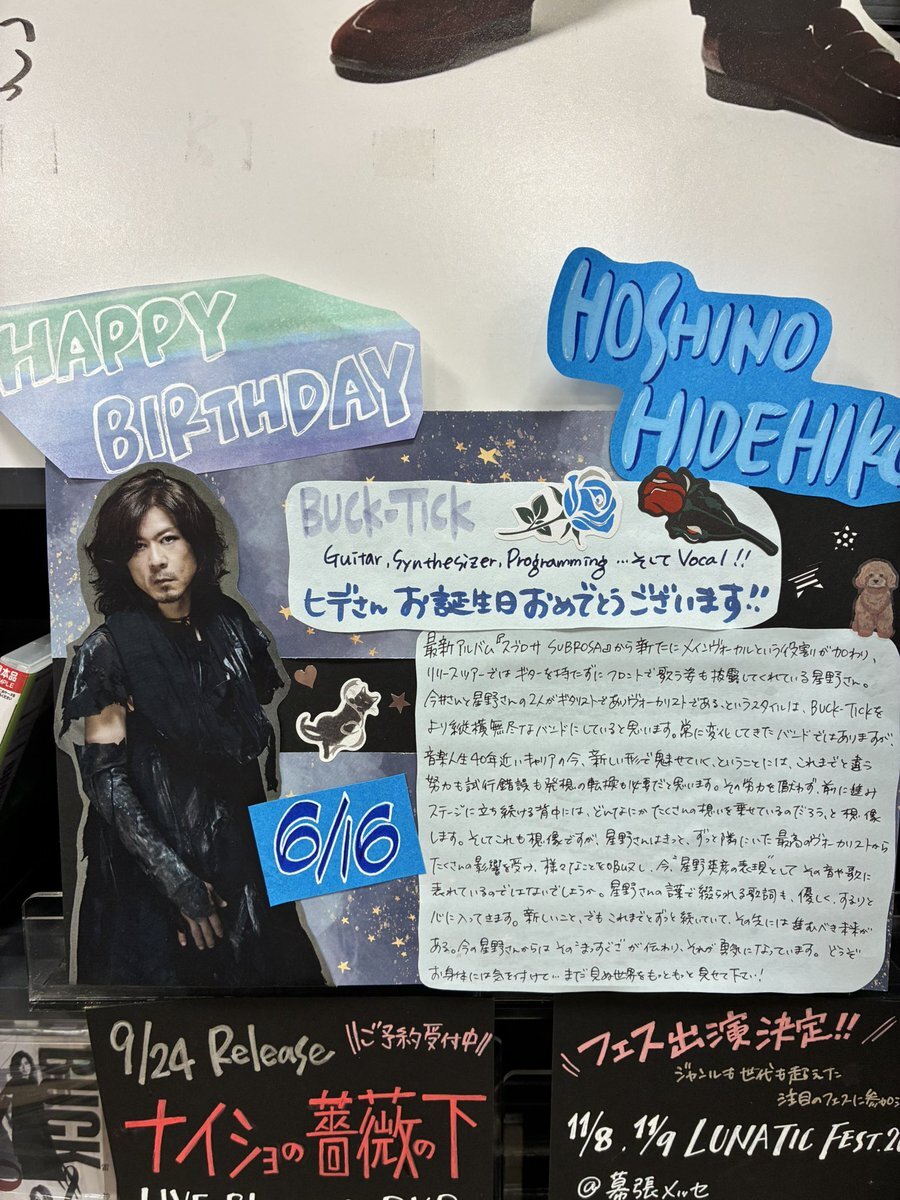 HAPPY
BIRTHDAY
HOSHINO
HIDEHIKO
BUCK-TICK
Guitar, Synthesizer, Programming …そして Vocal!!
ヒデさん お誕生日おめでとうございます!!
最新アルバム『スブロサ SUBROSA』から新たにメインヴォーカルという役割が加わり、
リリースツアーではギターを持たずにフロントで歌う姿も披露してくれている星野さん。
今井さんと星野さんの2人がギタリストでありヴォーカリストである、というスタイルは、BUCK-TICKを
より縦横無尽なバンドにしていると思います。常に変化してきたバンドではありますが、
音楽人生40年近いキャリアの今、新しい形で魅せていく、ということには、これまでと違う
努力も試行錯誤も発想の転換も必要だと思います。その労力を厭わず、前に進み
ステージに立ち続ける背中には、どんなにかたくさんの想いを乗せているのだろう、と想像
します。そしてこれも想像ですが、星野さんはきっと、ずっと隣にいた最高のヴォーカリストから
たくさんの影響を受け、様々なことを吸収し、今、"星野英彦の表現"としてその音や歌に
表れているのではないでしょうか。星野さんの譜で綴られる歌詞も、優しく、するりと
心に入ってきます。新しいこと、でもこれまでとずっと続いていて、その先には進むべき未来が
ある。今の星野さんからはそのまっすぐさが伝わり、それが勇気になっています。どうぞ
お身体には気を付けて…まだ見ぬ世界をもっともっと見せて下さい!
6/16
9/24 Release
ご予約受付中
ナイショの薔薇の下
フェス出演決定!!
ジャンルも世代も超えた
注目のフェスに参加
11/8, 11/9 LUNATIC FEST.
@幕張メッセ